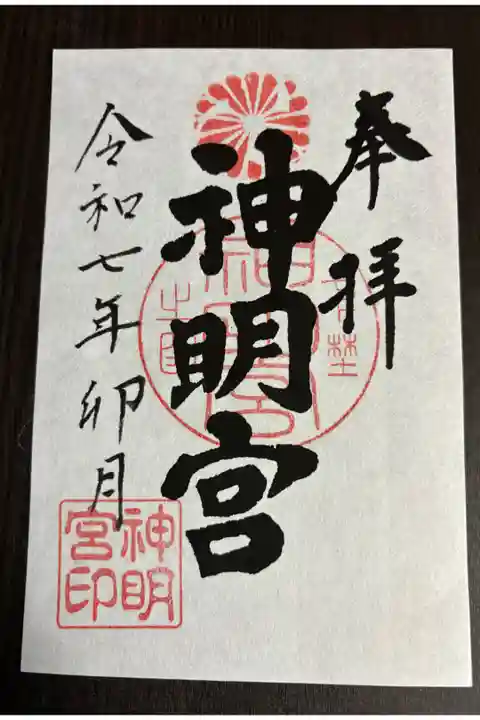 奉拝
神明宮
令和七年卯月
神明宮印